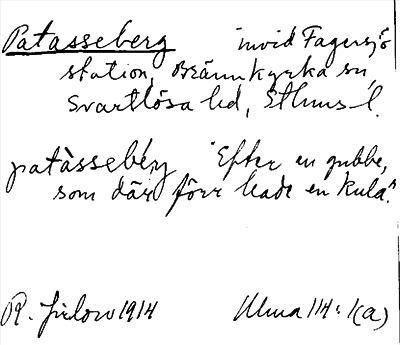 Patasseberg invid Fagersjö
station, Brännkyrka sn,
Svartlösa hd, Sthlms l.
patàssebérg "Efter en gubbe,
som där förr hade en kula."
R. Jirlow 1914 Ulma 114:1(a)